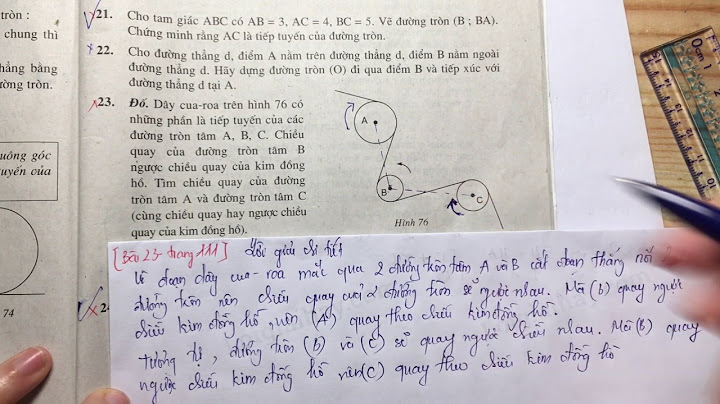 tròn :
chung thì
hẳng bằng
ường tròn.
uông góc
tuyến của
74
21. Cho tam giác ABC có AB = 3, AC = 4, BC = 5. Vẽ đường tròn (B ; BA).
Chứng minh rằng AC là tiếp tuyến của đường tròn.
22. Cho đường thẳng d, điểm A nằm trên đường thẳng d, điểm B nằm ngoài
đường thẳng d. Hãy dựng đường tròn (O) đi qua điểm B và tiếp xúc với
đường thẳng d tại A.
23. Đố. Dây cua-roa trên hình 76 có
những phần là tiếp tuyến của các
đường tròn tâm A, B, C. Chiều
quay của đường tròn tâm B
ngược chiều quay của kim đồng
hồ. Tìm chiều quay của đường
tròn tâm A và đường tròn tâm C
(cùng chiều quay hay ngược chiều
quay của kim đồng hồ).
A
B
C
Hình 76
0cm 1
[Bài 23 - trang 111] Lời giải chi tiết
Vì đoạn dây cua-roa mắc qua 2 đường tròn tâm A và B cắt đoạn thẳng nối 2
đường tròn nên chiều quay của 2 đường tròn sẽ ngược nhau. Mà (B) quay ngược
chiều kim đồng hồ, nên (A) quay theo chiều kim đồng hồ.
Tương tự, đường tròn (B) và (C) sẽ quay ngược chiều nhau. Mà (B) quay
ngược chiều kim đồng hồ nên (C) quay theo chiều kim đồng hồ
24